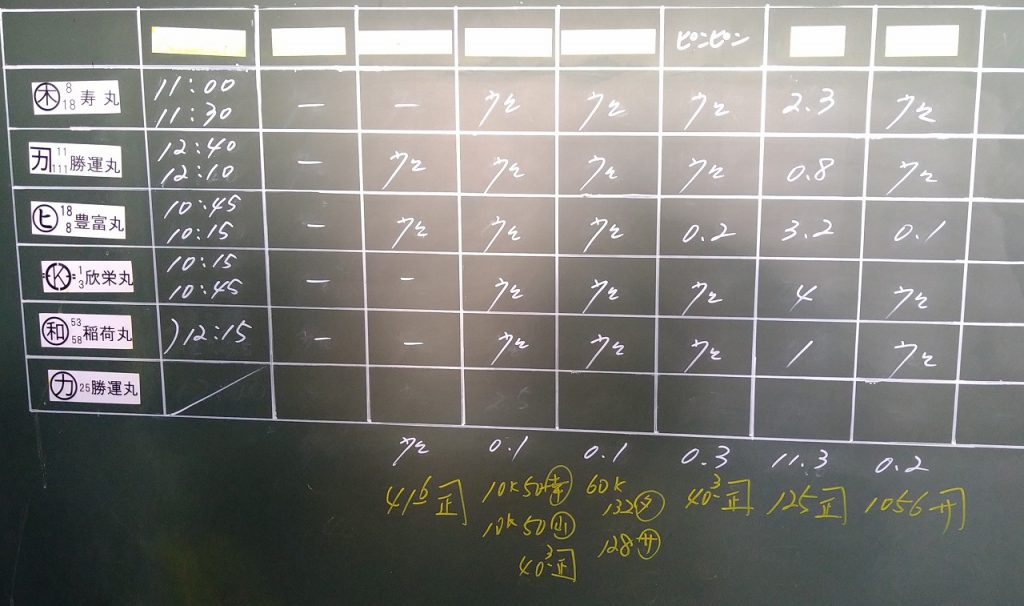 ピンピン
木 8 18 寿丸 11:00 11:30 ー ー ウと ウと ウと 2.3 ウと
カ 11 111 勝運丸 12:40 12:10 ー ウと ウと ウと ウと 0.8 ウと
ヒ 18 8 豊富丸 10:45 10:15 ー ウと ウと ウと 0.2 3.2 0.1
K 1 3 欣栄丸 10:15 10:45 ー ー ウと ウと ウと 4 ウと
和 53 58 稲荷丸 )12:15 ー ー ウと ウと ウと 1 ウと
カ 25 勝運丸
ウと 0.1 0.1 0.3 11.3 0.2
416 正 10K50 60K 40.3 正 125 正 1056 サ
10K50 山 132 タ
40.3 正 128 サ